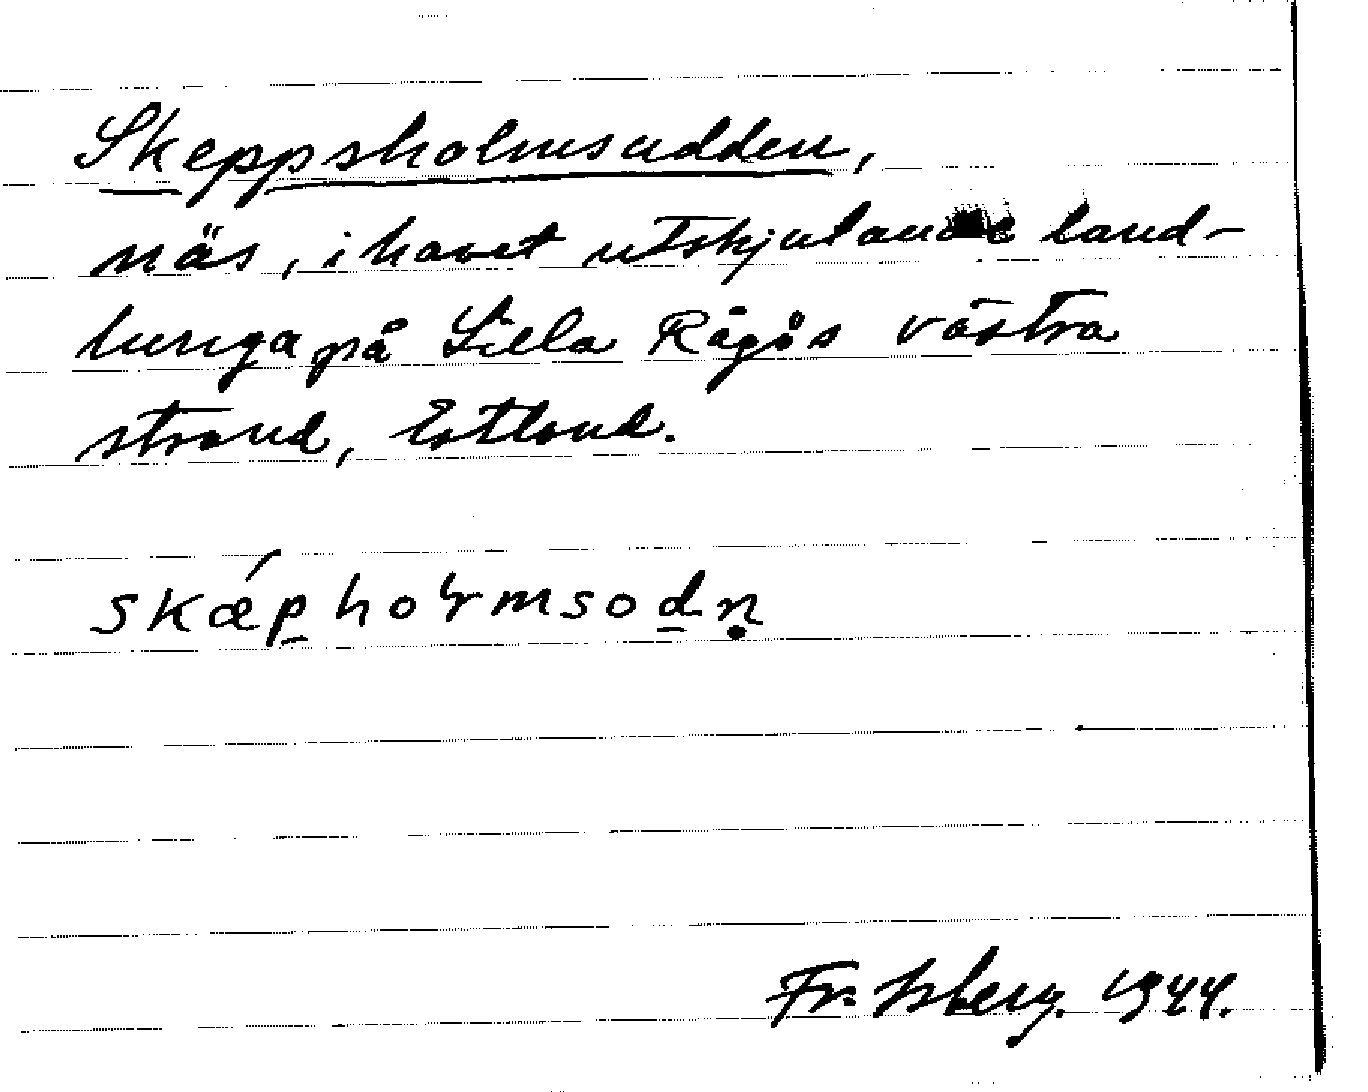 Skeppsholmsudden,
näs, i havet utskjutande land-
tunga på Lilla Rågös västra
strand, Estland.
skǽp̱hoɫmsoḏṇ
Fr. Isberg. 1944.